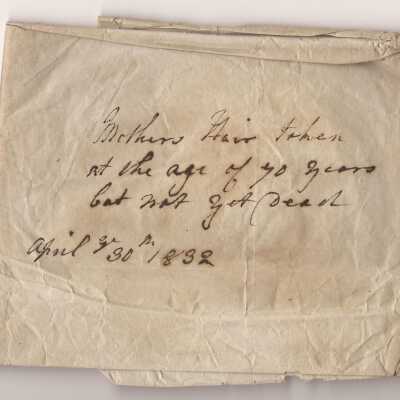 Mothers Hair taken
at the age of 70 years
but not yet Dead
April ye 30th 1832